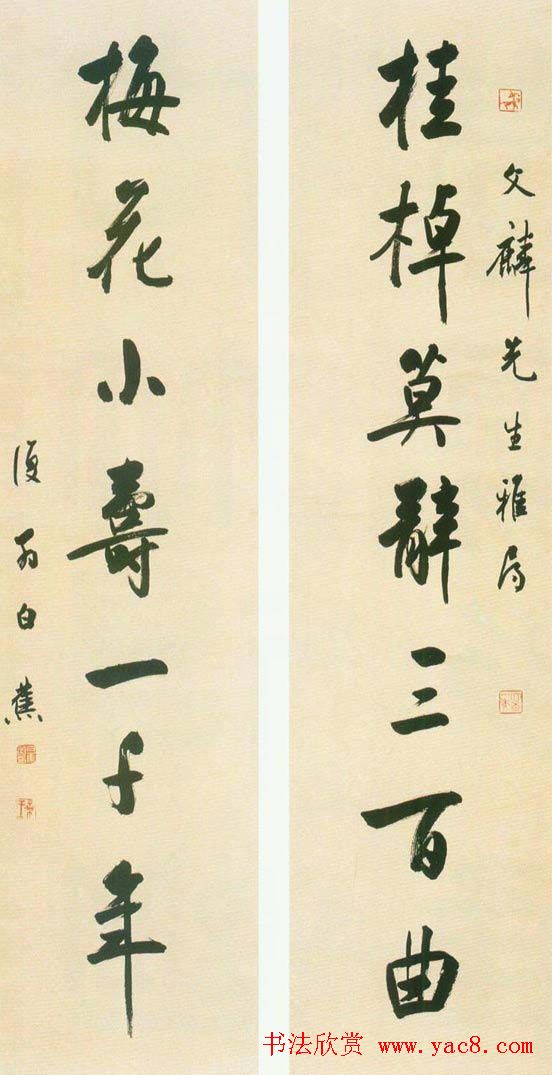 文麟先生雅属
桂棹莫辞三百曲
梅花小壽一千年
復翁白蕉
书法欣赏 www.yac8.com